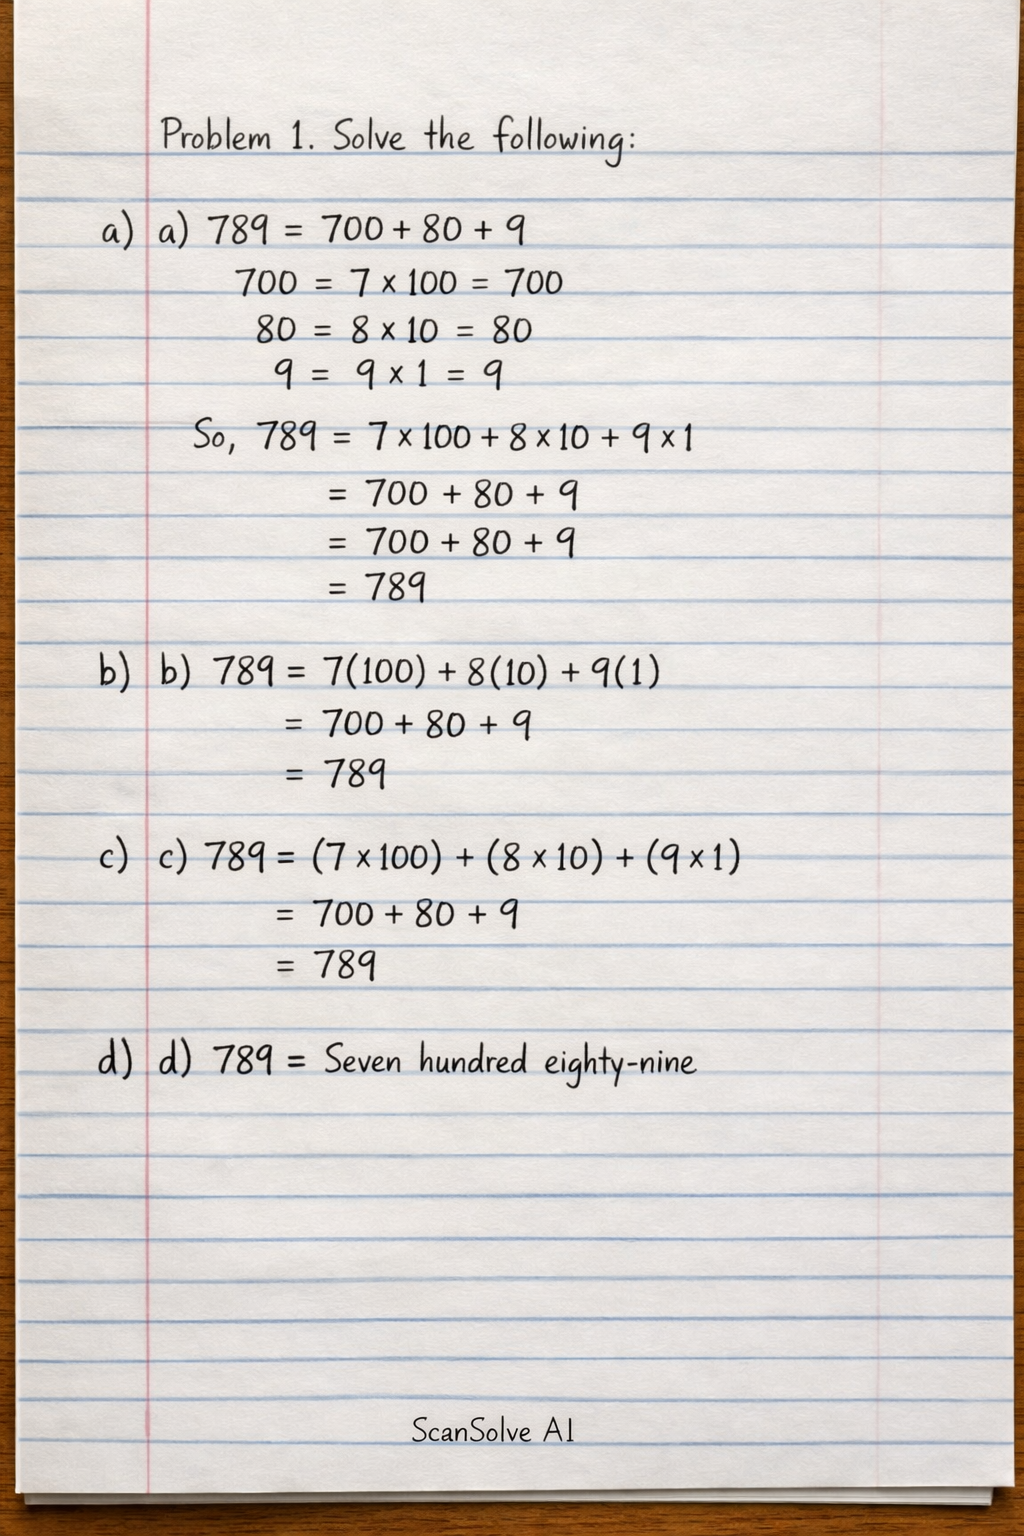 Problem 1. Solve the following:
a) a) 789 = 700 + 80 + 9
700 = 7 × 100 = 700
80 = 8 × 10 = 80
9 = 9 × 1 = 9
So, 789 = 7 × 100 + 8 × 10 + 9 × 1
= 700 + 80 + 9
= 700 + 80 + 9
= 789
b) b) 789 = 7(100) + 8(10) + 9(1)
= 700 + 80 + 9
= 789
c) c) 789 = (7 × 100) + (8 × 10) + (9 × 1)
= 700 + 80 + 9
= 789
d) d) 789 = Seven hundred eighty-nine
ScanSolve AI